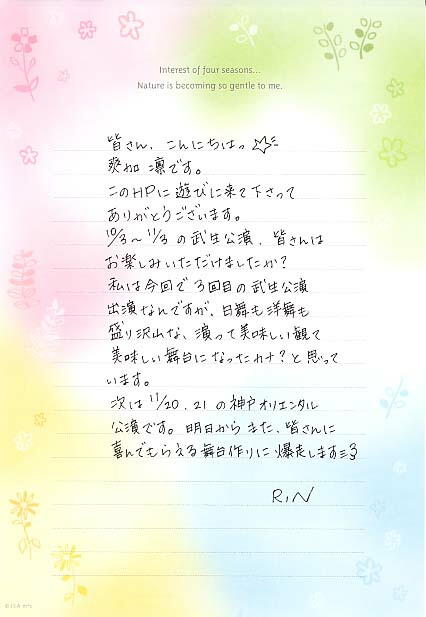 Interest of four seasons...
Nature is becoming so gentle to me.
皆さん、こんにちはっ☆ミ
爽加 凛です。
このHPに遊びに来て下さって
ありがとうございます。
10/3～11/3の武生公演、皆さんは
お楽しみいただけましたか?
私は今回で3回目の武生公演
出演なんですが、日舞も洋舞も
盛り沢山な、演って美味しい観て
美味しい舞台になったカナ?と思って
います。
次は11/20.21の神戸オリエンタル
公演です。明日からまた、皆さんに
喜んでもらえる舞台作りに爆走します
RIN